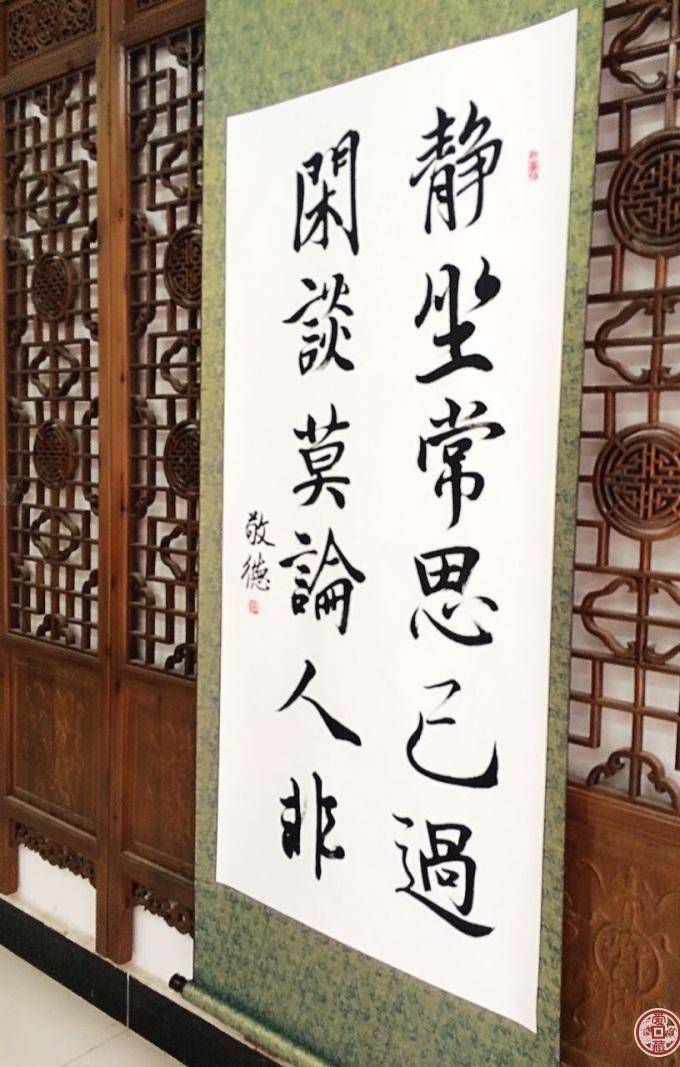 静坐常思己過
閑談莫論人非
敬德